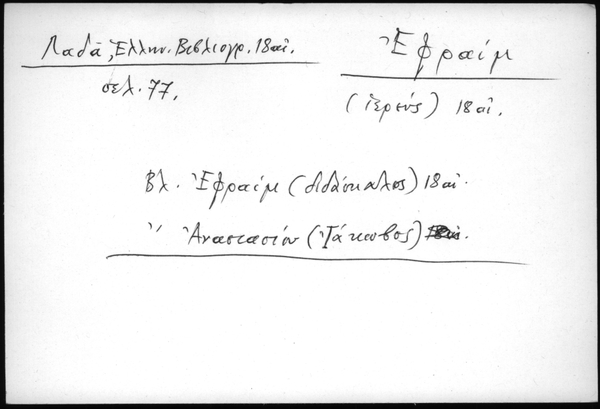 Λαδᾶ, Ἑλλην. Βιβλιογρ. 18 αἰ.
σελ. 77.
Ἐφραίμ
(ἱερεύς) 18 αἰ.
Βλ. Ἐφραίμ (διδάσκαλος) 18 αἰ.
〃 Ἀναστασίου (Ἰάκωβος)